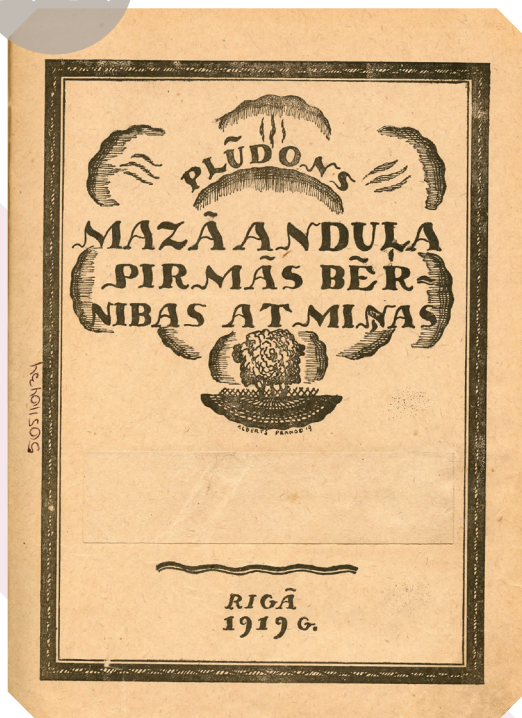 PLŪDONS
MAZĀ ANDUĻA
PIRMĀS BĒR-
NIBAS ATMIŅAS
ALBERTS PRANDE 19
RIGĀ
1919 G.